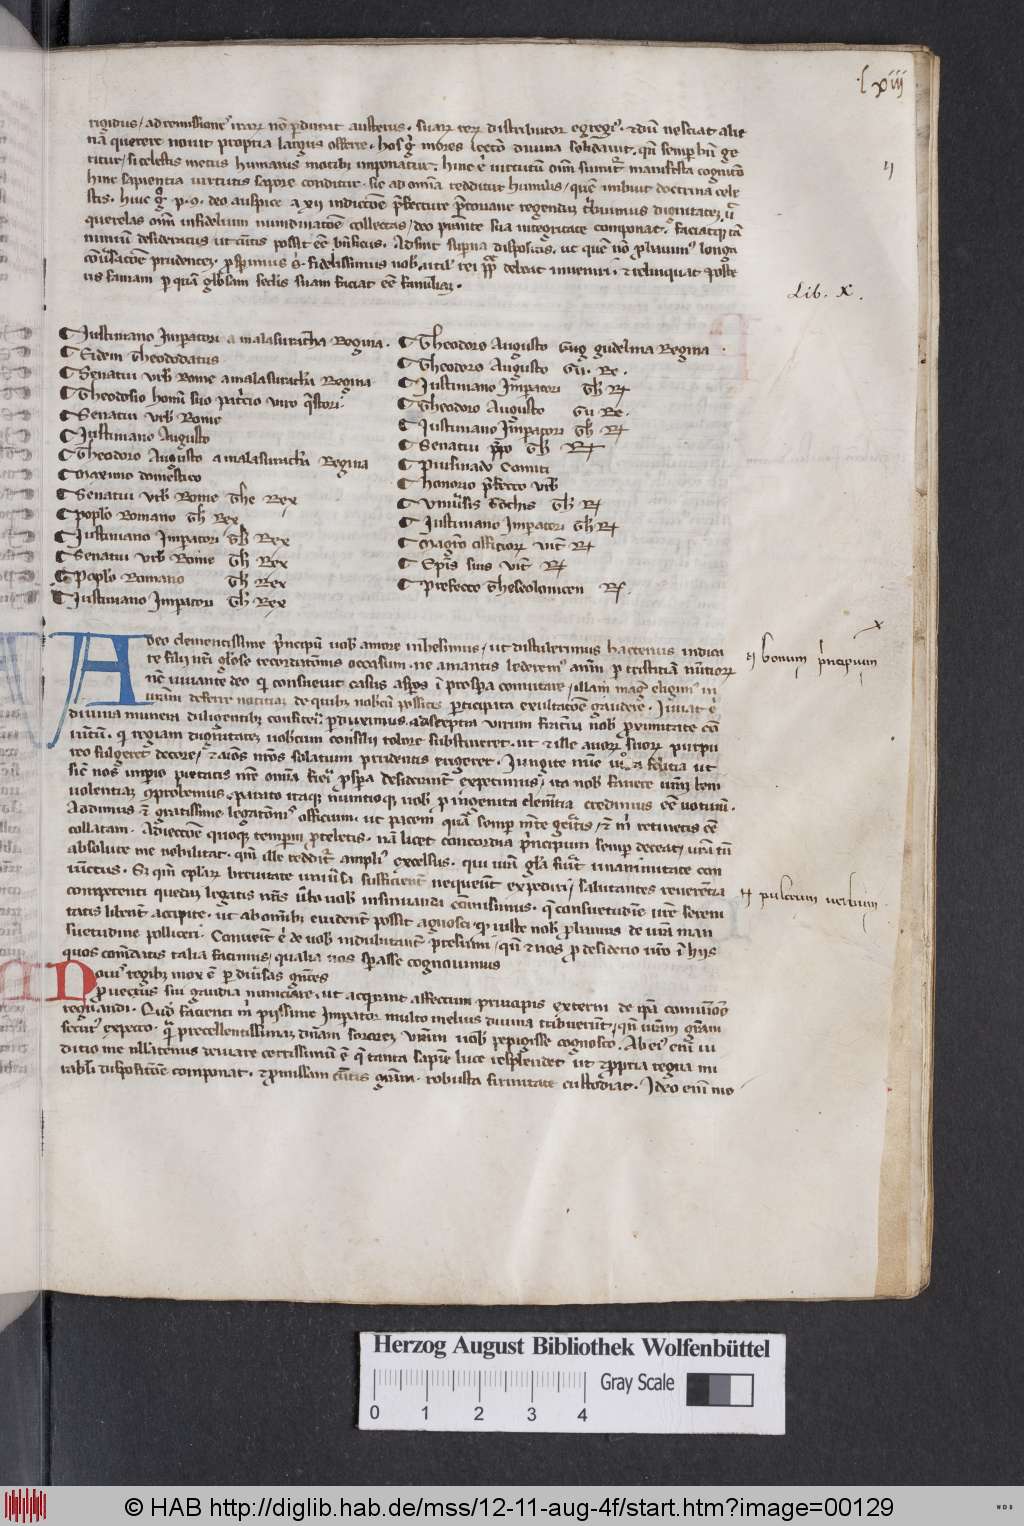 lxiii
rigidus / ad remissione irarum no perdurat austerus. suarum rerum distributor egregius. et dum nesciat alie
na querere novit propria largius offerre. hos gº mores lectio divina solidavit. quia semper bn ge
ritur / si celestis metus humanis motibus imponatur. hinc e virtutum omnium sumitur manifesta cognitio
hinc sapientia virtutis sapore conditur. sic ad omnia redditur humilis / quem imbuit doctrina cele
stis. huic gº deo auspice a xii indictione prefecture pretoriane regendam tribuimus dignitatem ut
querelas omnium infidelium nundinatione collectas / deo prestante sua integritate componat. faciatque ta
nimium desideratus ut cunctis possit esse beneficus. Adsint superna dispositis. ut quem no plurimus longa
conversatione prudentem. prosperimus et fidelissimus nobis utilis rei publice debeat inveniri. et relinquat poste
ris famam per quam gloriosam sedis suam faciat esse familiam.
Lib. X.
Justiniano Imperatori amalasuintha Regina.
Eidem Theodadatus
Senatui urbis Rome amalasuintha Regina
Theodosio homini suo patricio viro questori
Senatui urbis Rome
Justiniano Augusto
Theodoro Augusto amalasuintha Regina
Maximo domestico
Senatui urbis Rome The Rex
Poplo Romano Th Rex
Justiniano Imperatori Th Rex
Senatui urbis Rome Th Rex
Poplo Romano Th Rex
Justiniano Imperatori Th Rex
Theodoro Augusto Gug gudelina Regina.
Theodoro Augusto Gu. Re.
Justiniano Imperatori Th R
Theodoro Augusto Gu Re.
Justiniano Imperatori Th R
Senatui ppo Th R
Comiti
honorio prefecto urb
Th R
Justiniano Imperatori Th R
Magro officiorum vict R
Epis suis vict R
Prefecto Thesalonicen R
Adeo clementissime principum vobis amore inhesimus / ut distulerimus hactenus indica
re filii nri gloriose recordationis occasum. ne amantis lederemus animum per tristitiam nuntiorum
nc iuvante deo qui consuevit casus asperos in prospera commutare / illam magis elegimus in
uram deferre notitiam de quibus nobiscum possitis participata exultatione gaudere. Juvat e
divina munera diligentibus confiteri perduximus ad sceptra virum fraterna nobis proximitate con
iunctum. qui regiam dignitatem vobiscum consilii robore substineret. ut et ille avorum suorum purpu
reo fulgeret decore / et animos nostros solatium prudentis erigeret. Jungite nunc vos et felicia ut
sicut nos imperio pietatis vestre omnia fieri prospera desideranter expetimus / ita nobis favere vestram beni
volentiam comprobemus. patrato itaque nuntioque vobis per ingenita clementia credimus esse votivum.
Addimus et gratissime legationis officium. ut pacem quam semper mente geritis / et mihi retinetis esse
collatam. Adiectione quoque temporum proteletis. nam licet concordia principum semper deceat / vestra tamen
absolute me nobilitat. quoniam ille redditur amplius excelsus. qui vestre glorie fuerit unanimitate con
iunctus. Sed quoniam epistolarum brevitate universa sufficienter nequeunt expediri / salutantes reverentia
competenti quedam legatis nostris verbo vobis insinuanda commisimus. que consuetudine vestre sereni
tatis libenter accipite. ut ab omnibus evidenter possit agnosci. quod iuste nobis plurimis de vestra man
suetudine polliceri. Convenit e de vobis indubitanter presumi / quando et nos pro desiderio vestro in hiis
quos commendatis talia facimus / qualia vos sperasse cognovimus
Novis regibus mox e per diversas gentes
provectus sui gaudia nunciare. ut acquirant affectum principis externi de ipsa communione
regnandi. Quod facienti mihi piissime Imperator multo melius divina tribuerunt / quando vestram gratiam
securus expecto. quia precellentissimam dominam sororem vestram vobis pepigisse cognosco. Ab eius enim iu
ditio me nullatenus deviare certissimum e qui tanta sapientie luce resplendet ut et propria regna mi
rabili dispositione componat. et promissam cunctis gratiam. robusta firmitate custodiat. Ideo enim me
bonum principum
pulcrum verbum.
Herzog August Bibliothek Wolfenbüttel
Gray Scale
0 1 2 3 4
© HAB http://diglib.hab.de/mss/12-11-aug-4f/start.htm?image=00129